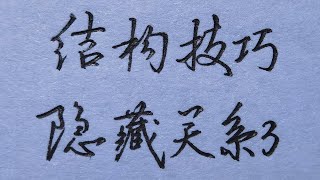 结构技巧
隐藏关系3